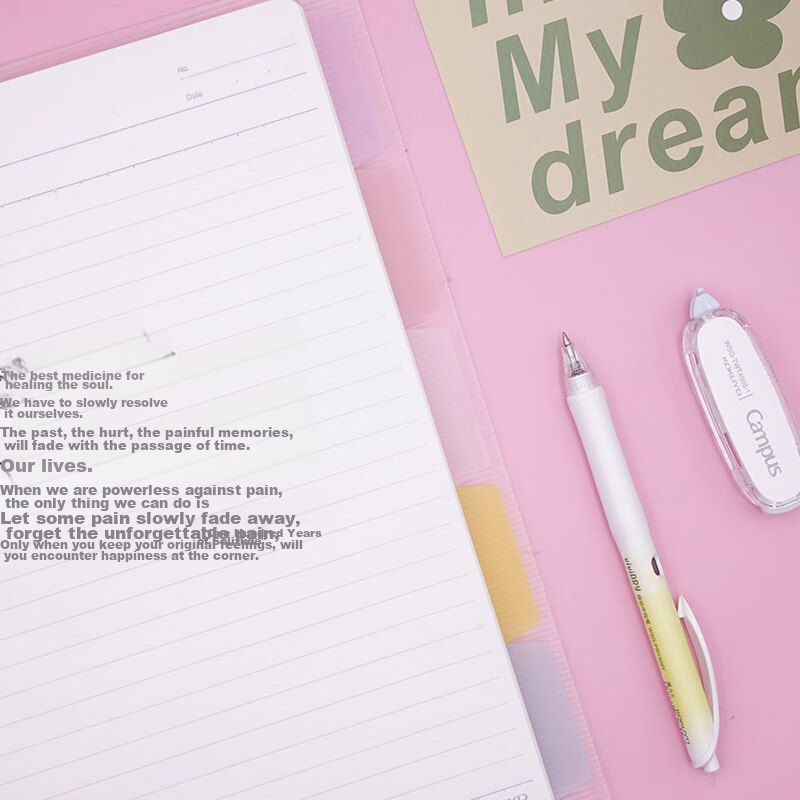 My
dream
No.
Date
The best medicine for
healing the soul.
We have to slowly resolve
it ourselves.
The past, the hurt, the painful memories,
will fade with the passage of time.
Our lives.
When we are powerless against pain,
the only thing we can do is
Let some pain slowly fade away,
forget the unforgettable pain,
Only when you keep your original feelings, will
you encounter happiness at the corner.
KOKUYO
Campus
ViViDRY
KOKUYO